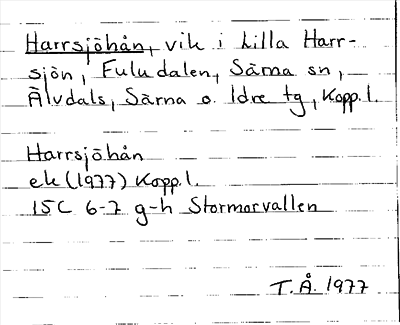 Harrsjöhån, vik i Lilla Harr-
sjön, Fuludalen, Särna sn,
Älvdals, Särna o. Idre tg, Kopp. l.
Harrsjöhån
ek (1977) Kopp. l.
15C 6-7 g-h Stormorvallen
T.Å. 1977